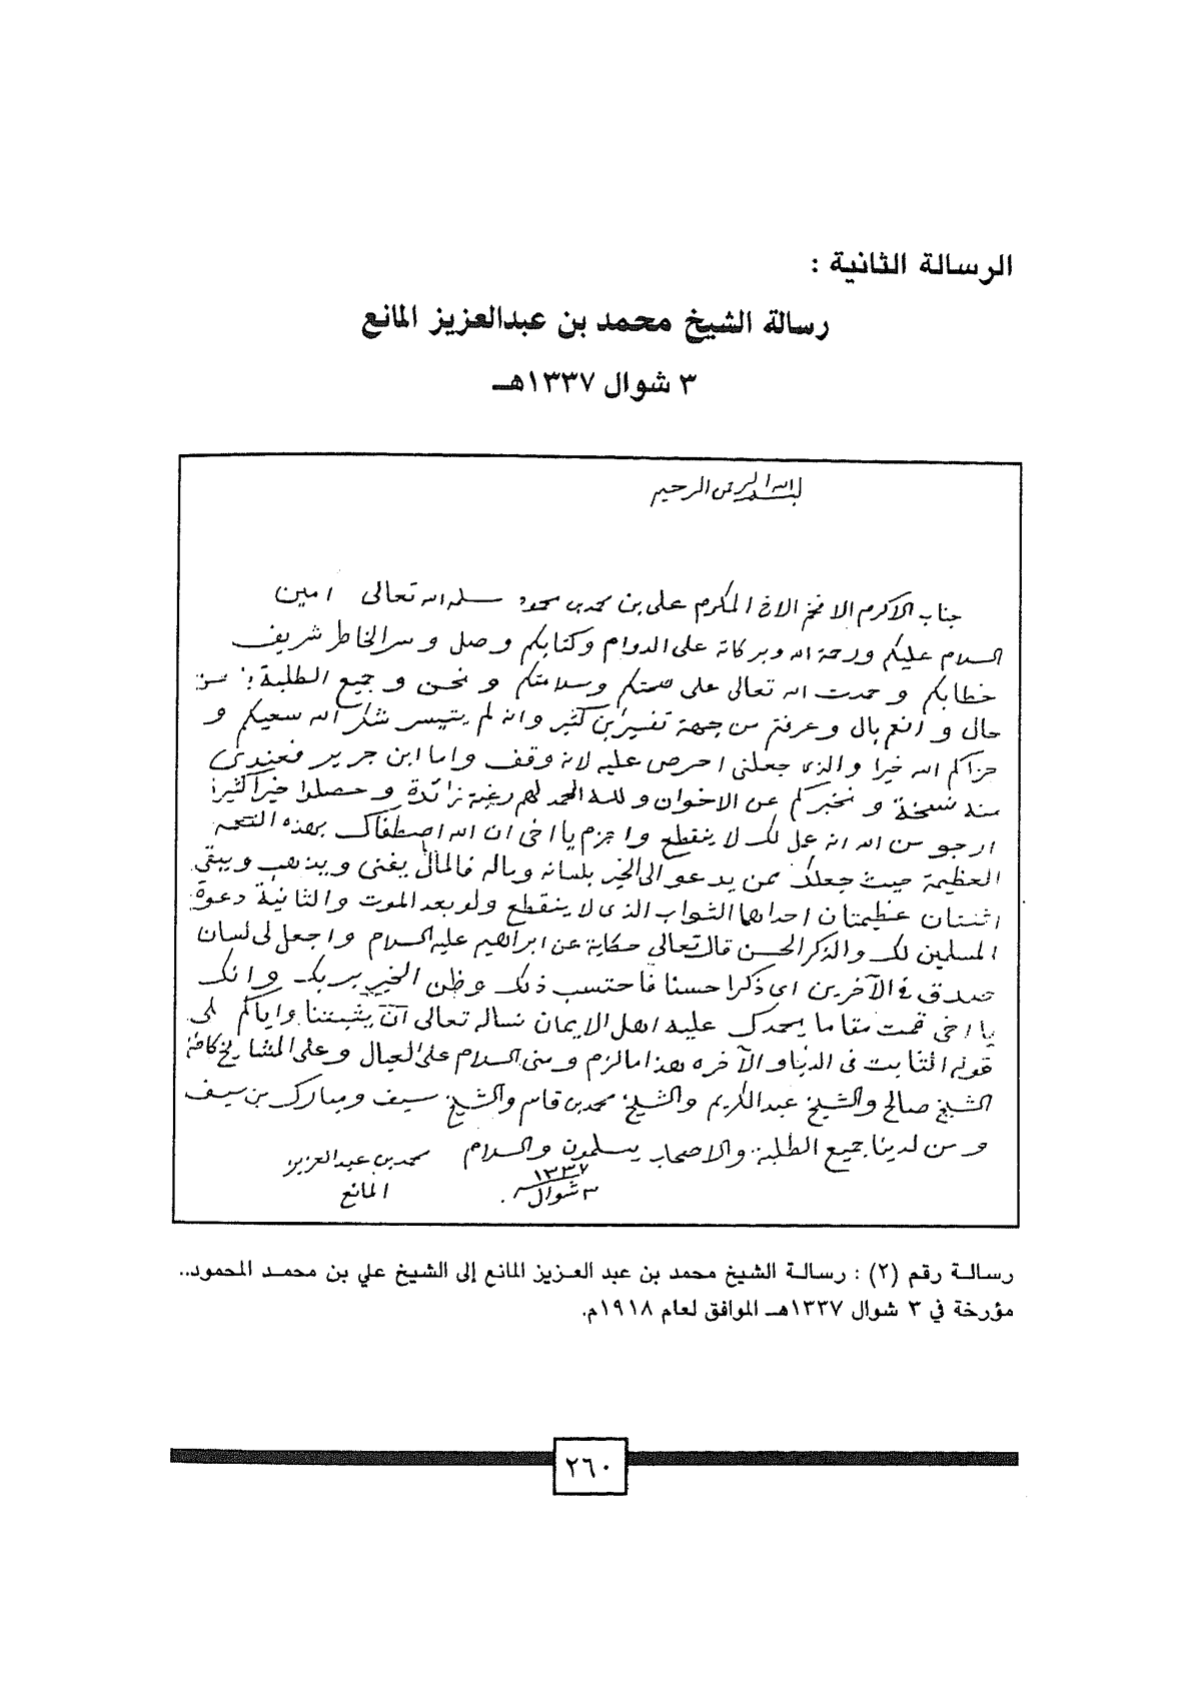 الرسالة الثانية :
رسالة الشيخ محمد بن عبدالعزيز المانع
٣ شوال ١٣٣٧هـ
بسم الله الرحمن الرحيم
جناب الاكرم الافخم الاخ المكرم علي بن محمد بن محمود سلمه الله تعالى امين
السلام عليكم ورحمة الله وبركاته على الدوام وكتابكم وصل وسر الخاطر شريف
خطابكم وحمدت الله تعالى على صحتكم وسلامتكم ونحن وجميع الطلبة باحسن
حال وانعم بال وعرفتم من جهة تفسير ابن كثير وانه لم يتيسر شكر الله سعيكم و
جزاكم الله خيرا والذي جعلني احرص عليه لانه وقف واما ابن جرير فعندي
منه نسخة ونخبركم عن الاخوان ولله الحمد لهم رغبة زائدة وحصلوا خيرا كثيرا
ارجو من الله انه عمل لك لا ينقطع واجزم يا اخي ان الله اصطفاك بهذه النعمة
العظيمة حيث جعلك ممن يدعو الى الخير بلسانه وباله فالمال يفنى ويذهب ويبقى
اثنتان عظيمتان احداهما الثواب الذي لا ينقطع ولو بعد الموت والثانية دعوة
المسلمين لك والذكر الحسن قال تعالى حكاية عن ابراهيم عليه السلام واجعل لي لسان
صدق في الآخرين اي ذكرا حسنا فاحتسب ذلك وظن الخير بربك وانك
يا اخي قمت مقاما يحمدك عليه اهل الايمان نساله تعالى ان يثبتنا واياكم على
قوله الثابت في الدنيا والآخره هذا مالزم ومني السلام على العيال وعلى المشايخ كافة
الشيخ صالح والشيخ عبدالكريم والشيخ محمد بن قاسم والشيخ سيف ومبارك بن سيف
ومن لدينا جميع الطلبة والاصحاب يسلمون والسلام
محمد بن عبدالعزيز
المانع
١٣٣٧
٣ شوال
رسالة رقم (٢) : رسالة الشيخ محمد بن عبد العزيز المانع إلى الشيخ علي بن محمد المحمود..
مؤرخة في ٣ شوال ١٣٣٧هـ الموافق لعام ١٩١٨م.
٢٦٠